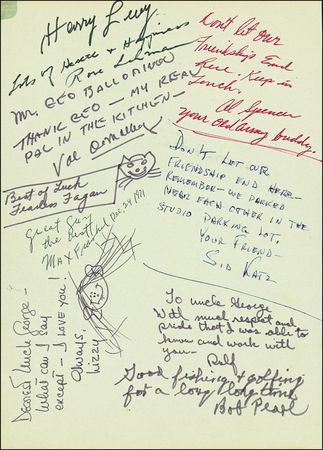 Harry Levy
Lots of Health & Happiness
Rose Lehman
Don't let our
Friendship End
Here. Keep in
Touch.
Al Spencer
your old army buddy.
Mr. GEO BALLOMINO
THANK GEO — MY REAL
PAL IN THE KITCHEN —
Val O'Malley
Best of Luck
Fearless Fagan
Great Guy
the best!
Dec 24 1971
DON'T LET OUR
FRIENDSHIP END HERE—
REMEMBER—WE PARKED
NEAR EACH OTHER IN THE
STUDIO PARKING LOT.
YOUR FRIEND—
SID KATZ
Dearest Uncle George—
What can I say
except — I LOVE YOU!
Always,
Lizzy
To uncle George
With much respect and
pride that I was able to
know and work with
you—
Rolf
Good fishing & golfing
for a long long time
Bob Pearl